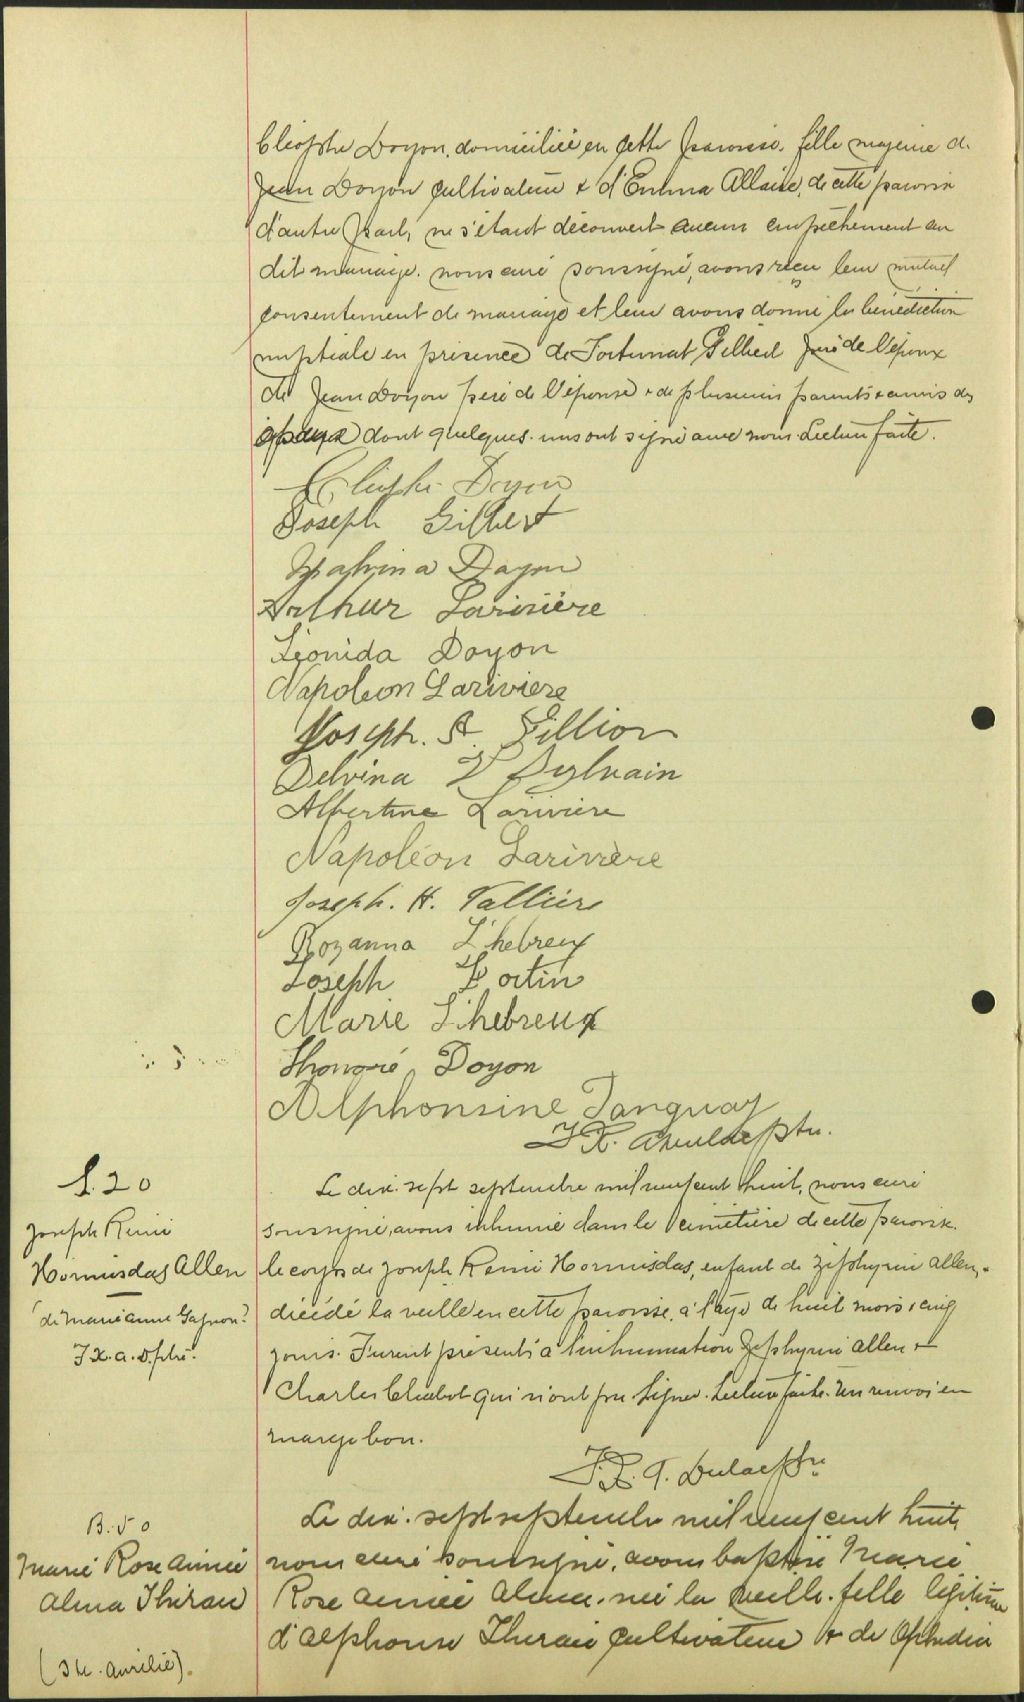 Cléophé Doyon, domiciliée en cette paroisse, fille majeure de
Jean Doyon cultivateur & d'Emma Allaire, de cette paroisse
d'autre part, ne s'étant découvert aucun empêchement au
dit mariage. nous curé soussigné, avons reçu leur mutuel
consentement de mariage et leur avons donné la bénédiction
nuptiale en présence de Fortunat Gilbert père de l'époux
de Jean Doyon père de l'épouse & de plusieurs parents & amis des
époux dont quelques-uns ont signé avec nous. Lecture faite.
Cléophé Doyon
Joseph Gilbert
Malvina Doyon
Arthur Larivière
Léonida Doyon
Napoleon Lariviere
Joseph. A.
Delvina Sylvain
Albertine Lariviere
Napoléon Larivière
Joseph. H. Vallière
Rozanna L'hebreux
Joseph Fortin
Marie L'hebreux
Thonoré Doyon
Alphonsine Tanguay
F.X. A. Dulac Ptre.
S. 20
Joseph Rémi
Hormisdas Allen
(de Marie Anne Gagnon)
F.X.A.D. ptre.
Le dix-sept septembre mil neuf cent huit, nous curé
soussigné, avons inhumé dans le cimetière de cette paroisse
le corps de Joseph Rémi Hormisdas, enfant de Zéphyrin Allen,
décédé la veille en cette paroisse, à l'âge de huit mois & cinq
jours. Furent présents à l'inhumation Zéphyrin Allen &
Charles Chabot qui n'ont pu signer. Lecture faite. Un renvoi en
marge bon.
F.X. A. Dulac Ptre
B. 50
Marie Rose Aimée
Alma Théreau
(Ste. Aurélie).
Le dix-sept septembre mil neuf cent huit,
nous curé soussigné, avons baptisé Marie
Rose Aimée Alma, née la veille, fille légitime
d'Alphonse cultivateur & de